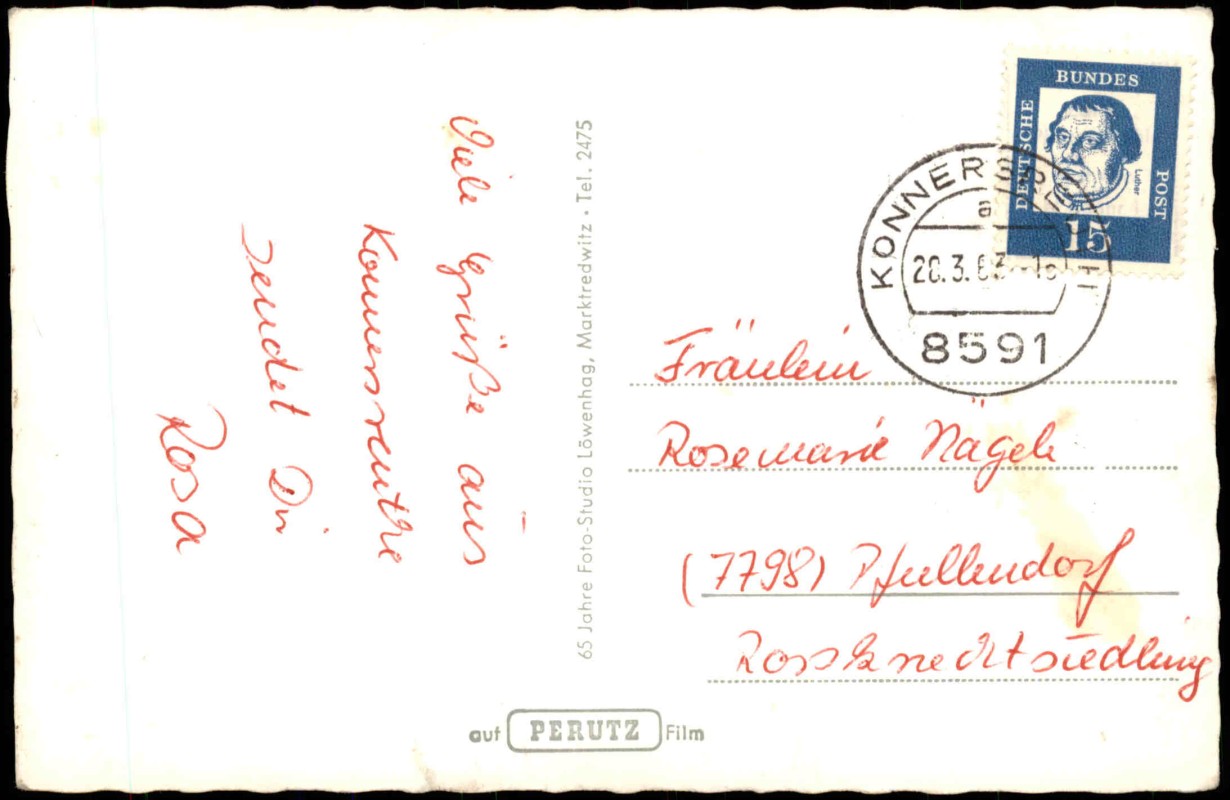 Viele Grüße aus
Konnersreuthe
sendet Dir
Rosa
65 Jahre Foto-Studio Löwenhag, Marktredwitz • Tel. 2475
auf PERUTZ Film
DEUTSCHE
BUNDES
POST
Luther
15
KONNERSREUTH
a
8591
Fräulein
Rosemarie Nägele
(7798) Pfullendorf
Rossknechtsiedlung